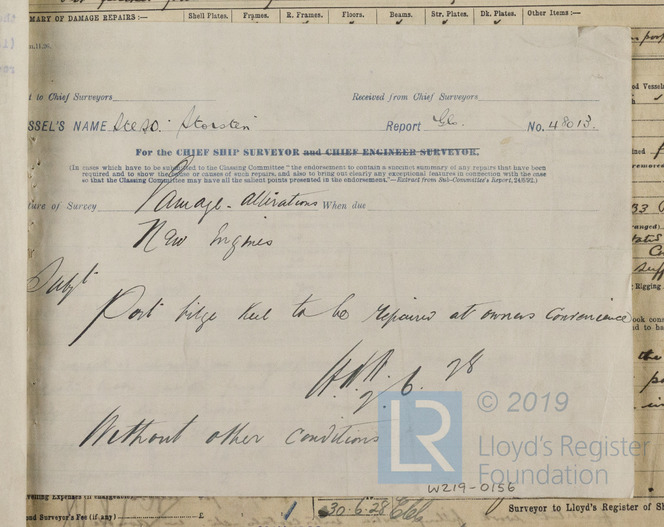 MARY OF DAMAGE REPAIRS :—
Shell Plates. Frames. R. Frames. Floors. Beams. Str. Plates. Dk. Plates. Other Items :—
t to Chief Surveyors
Received from Chief Surveyors
SSEL'S NAME Storstein Report Glo. No. 48013.
For the CHIEF SHIP SURVEYOR and CHIEF ENGINEER SURVEYOR.
(In cases which have to be submitted to the Classing Committee "the endorsement to contain a succinct summary of any repairs that have been
required and to show the nature or causes of such repairs, and also to bring out clearly any exceptional features in connection with the case
so that the Classing Committee may have all the salient points presented in the endorsement."—Extract from Sub-Committee's Report, 24/6/92.)
ture of Survey Damage - Alterations When due
New Engines
Subjt
Port bilge keel to be repaired at owners convenience
2.6.28
Without other conditions
LR © 2019
Lloyd's Register
Foundation
W219-0156
velling Expenses (if chargeable)
and Surveyor's Fee (if any) £
30.6.28
Surveyor to Lloyd's Register of Sh